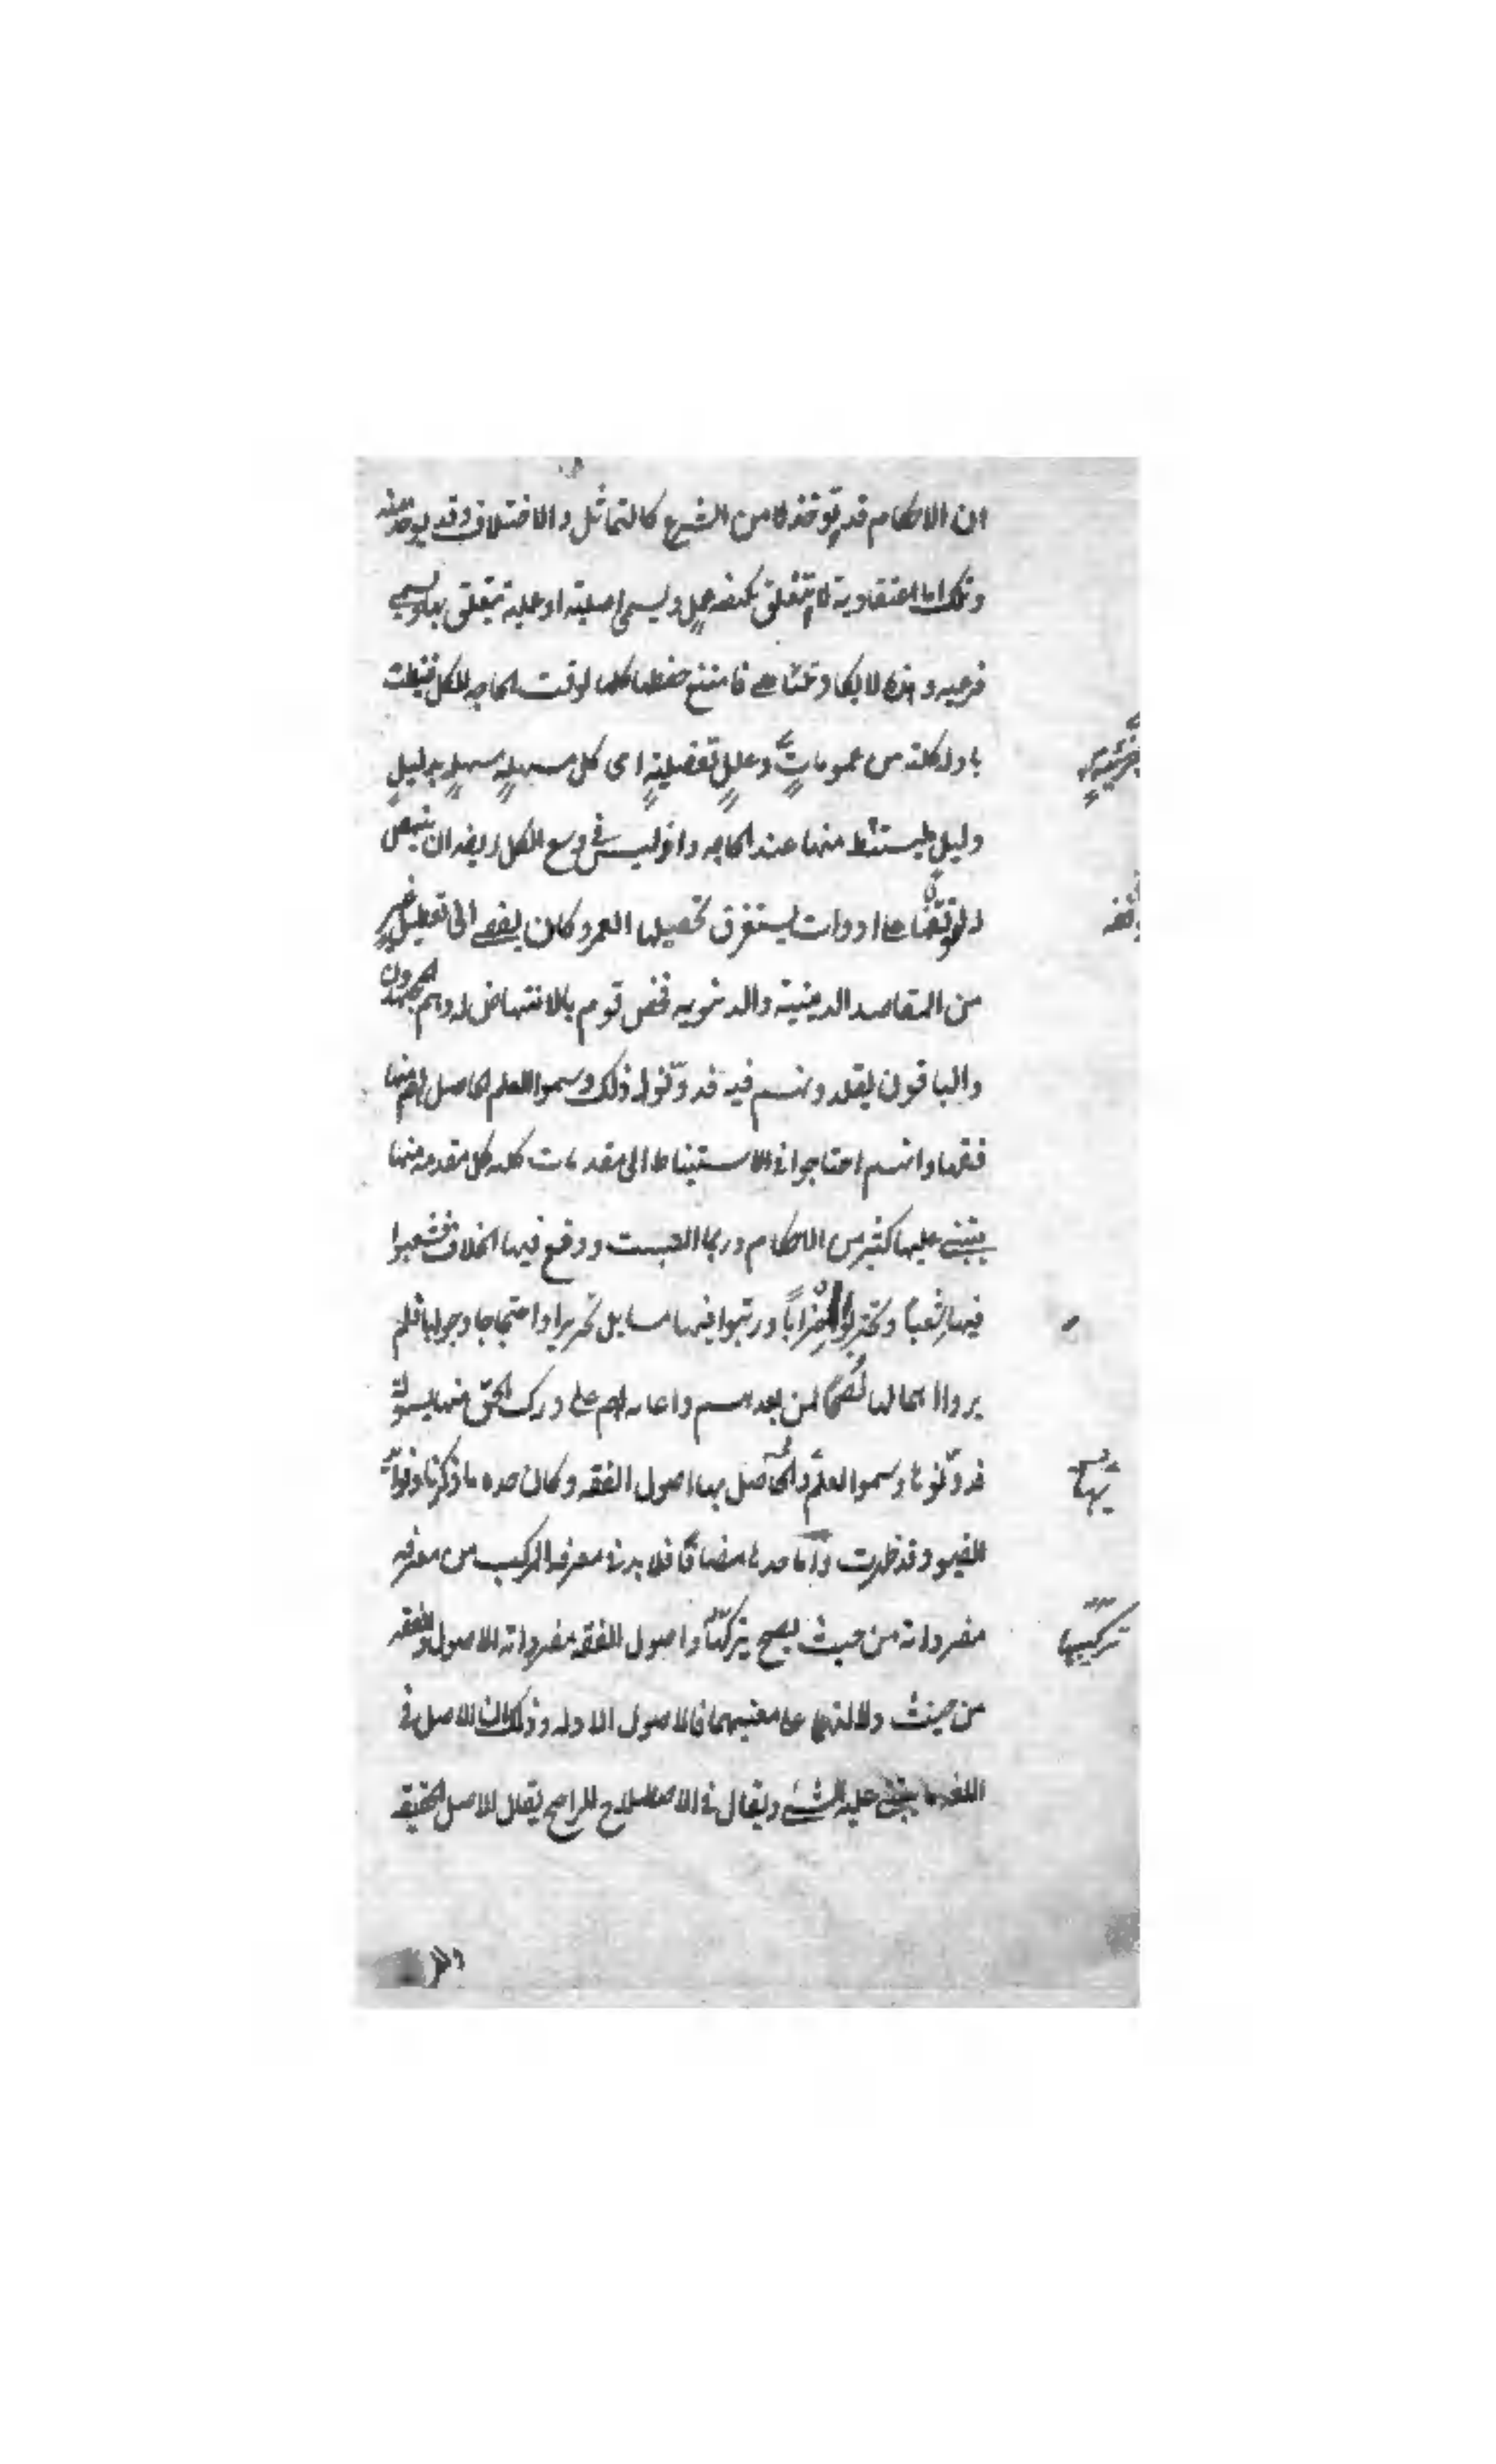 ان الاحكام قد تؤخذ لا من الشرع كالتماثل والاختلاف وقد يوخذ منه
وتلك اما اعتقادية لا تتعلق بكيفيه عمل ويسمى اصلية او عملية تتعلق بها ويسمى
فرعيه وهذه لا يكاد تتناهى فامتنع حفظها كلها لوقت الحاجه للكل فنيطت
بادلة كلية من عمومات وعلل تفصيلية اى كل مسئلة مسئلة بدليل
دليل ليستنبط منها عند الحاجه واذ ليس في وسع الكل ايضا ان ينتهض
له لتوقفه على ادوات يستغرق تحصيلها العمر وكان يفضى الى تعطيل غيره
من المقاصد الدينية والدنيويه فخص قوم بالانتهاض له وهم المجتهدون
والباقون يقلدونهم فيه فدونوا ذلك وسموا العلم الحاصل لهم منها
فقها وانهم احتاجوا في الاستنباط الى مقدمات كليه كل مقدمه منها
يبتنى عليها كثير من الاحكام وربما التبست ووقع فيها الخلاف فتشعبوا
فيها شعبا وتحزبوا احزابا ورتبوا فيها مسايل تحريرا واحتجاجا وجوابا فلم
يروا اهمالها نصحا لمن بعدهم واعانه لهم على درك الحق منها بسهولة
فدونوها وسموا العلم الحاصل بها اصول الفقه وكان حده ما ذكرنا وفوائد
القيود قد ظهرت واما حدها مضافا فلا بد في معرفه المركب من معرفه
مفرداته من حيث يصح تركبها واصول الفقه مفرداته الاصول والفقه
من حيث دلالتهما على معنييهما فالاصول الادله وذلك ان الاصل في
اللغه ما يبتنى عليه الشئ ويقال في الاصطلاح للراجح يقال الاصل الحقيقه
تركيبها